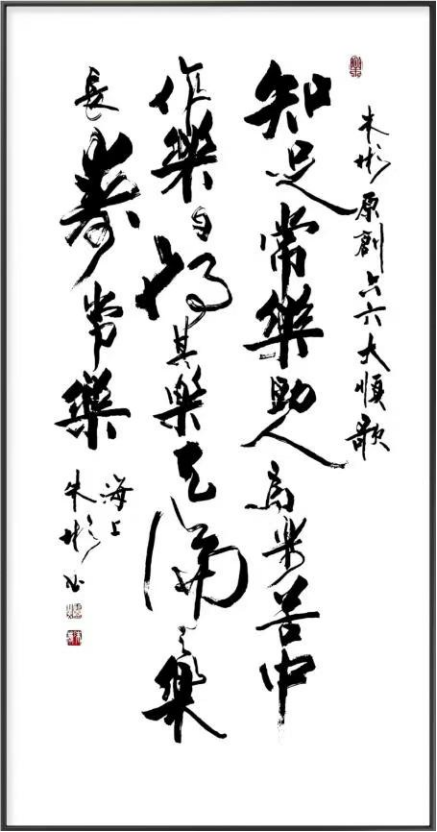 朱彬原創六六大順歌
知足常樂助人為乐苦中
作樂自得其樂天倫之樂
長壽常樂
海上
朱彬书